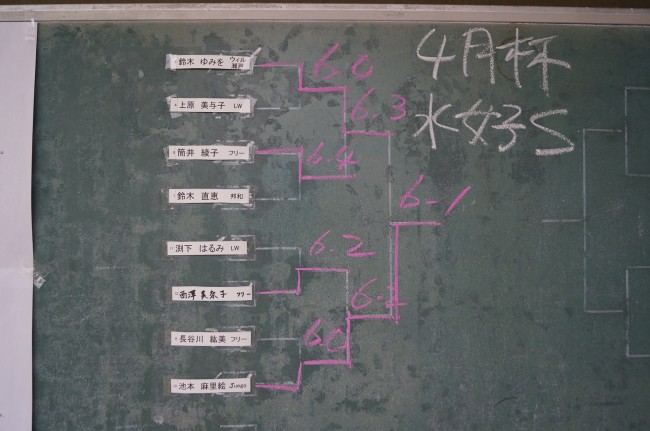 4月杯
水女子S
鈴木 ゆみを ウィル瀬戸
上原 美与子 LW
筒井 綾子 フリー
鈴木 直恵 邦和
渕下 はるみ LW
西澤 美奈子 フリー
長谷川 紘美 フリー
池本 麻里絵 Jump
6.0
6.4
6.2
6.0
6.3
6.2
6-1